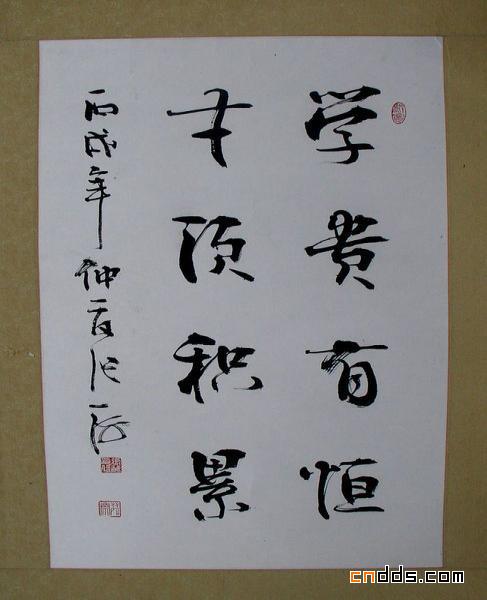 学贵有恒
才须积累
丙戌年 仲夏 张
cndds.com